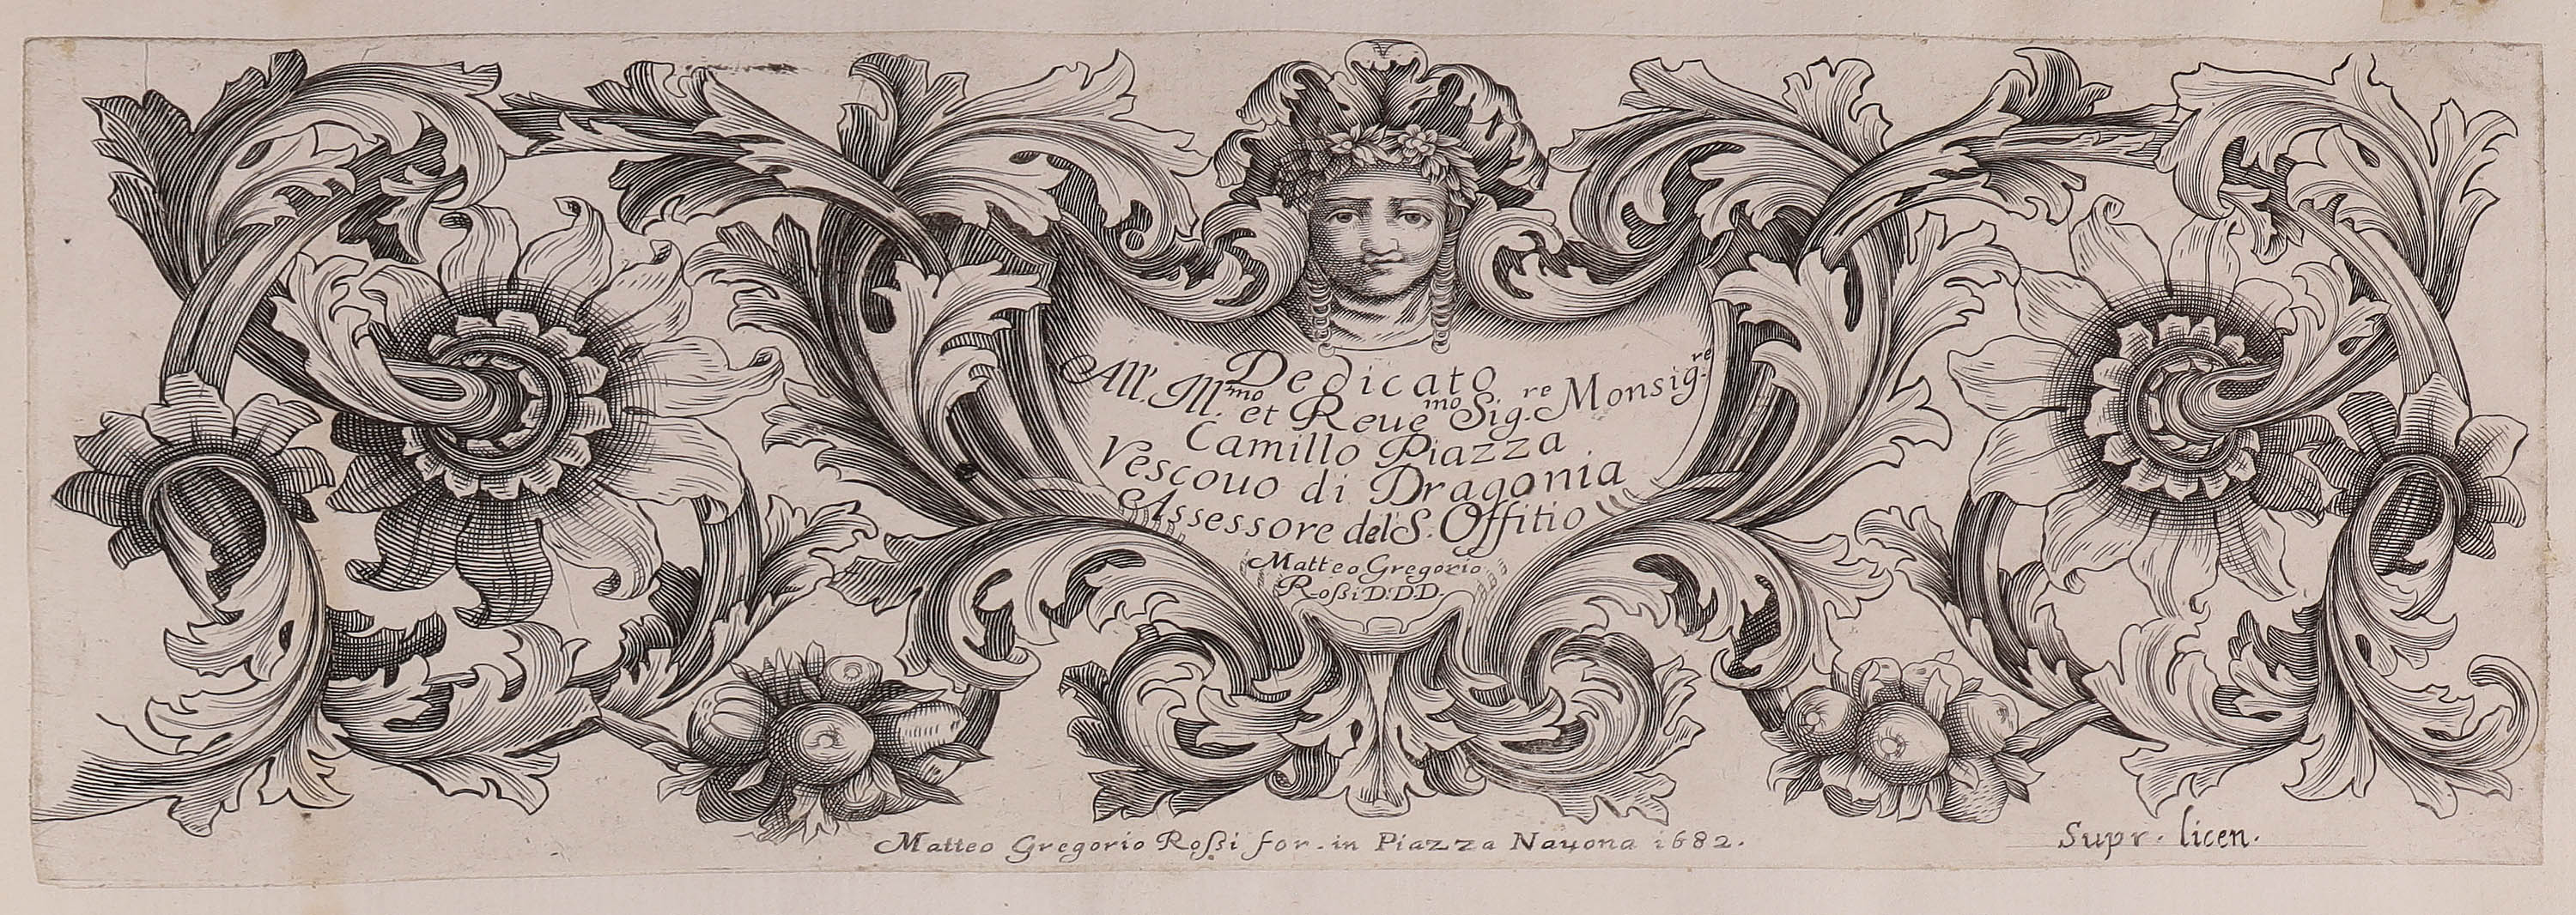 Dedicato
All'. Ill.mo et Reue.mo Sig.re Monsig.re
Camillo Piazza
Vescouo di Dragonia
Assessore del S. Offitio
Matteo Gregorio
Roßi D.D.D.
Matteo Gregorio Roßi for. in Piazza Nauona 1682.
Supr. licen.